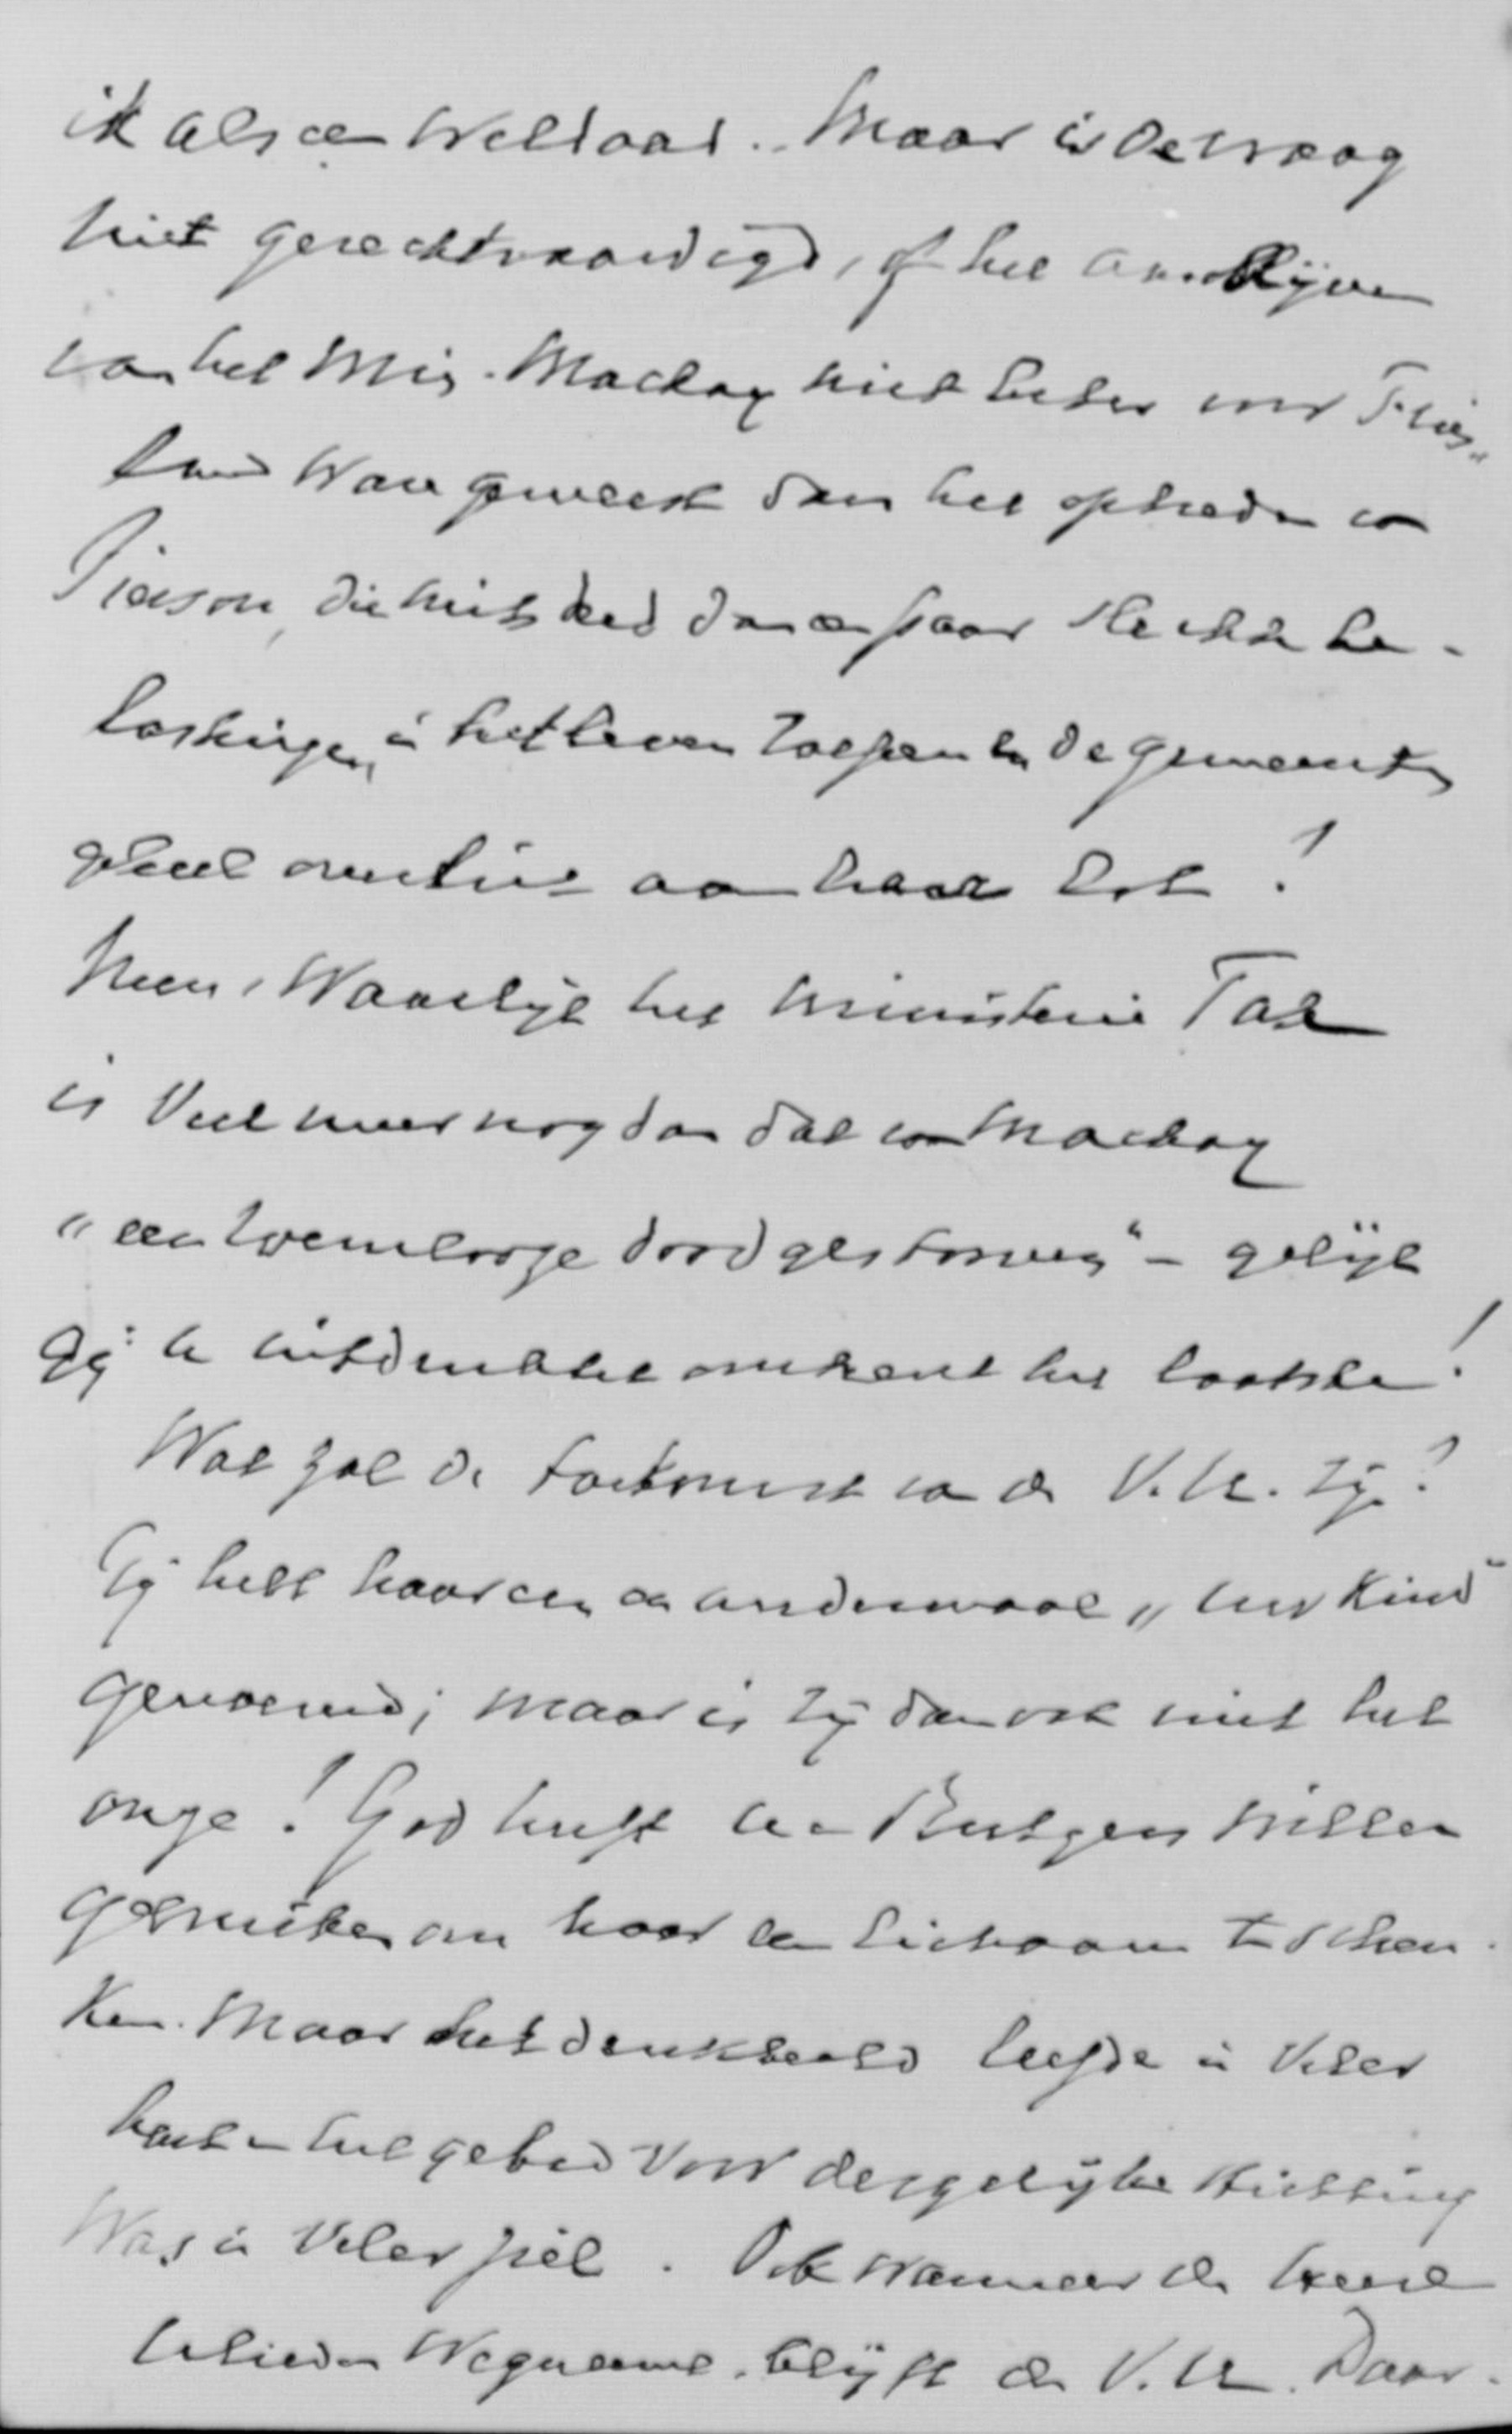 ik als een weldaad. Maar is de vraag
niet gerechtvaardigd, of het aanblijven
van het Min. Mackay niet beter voor Fries-
land ware geweest dan het optreden van
Pierson, die niets deed dan een paar slechte be-
lastingen in het leven roepen en de gemeenten
geheel overliet aan haar lot?
Neen, waarlijk het ministerie Tak
is veel meer nog dan dat van Mackay
"een roemlooze dood gestorven" – gelijk
Gij U uitdrukket omtrent het laatste!
Wat zal de toekomst van de V.U. zijn?
Gij hebt haar een en andermaal "Uw kind"
genoemd; maar is zij dan ook niet het
onze! God heeft Uw
gebruiken om haar een lichaam te schen-
ken. Maar het denkbeeld leefde in veler
hart en het gebed voor dergelijke stichting
was in veler ziel. Ook wanneer de Heere
Ulieden wegneme, blijft de V.U. Daar-